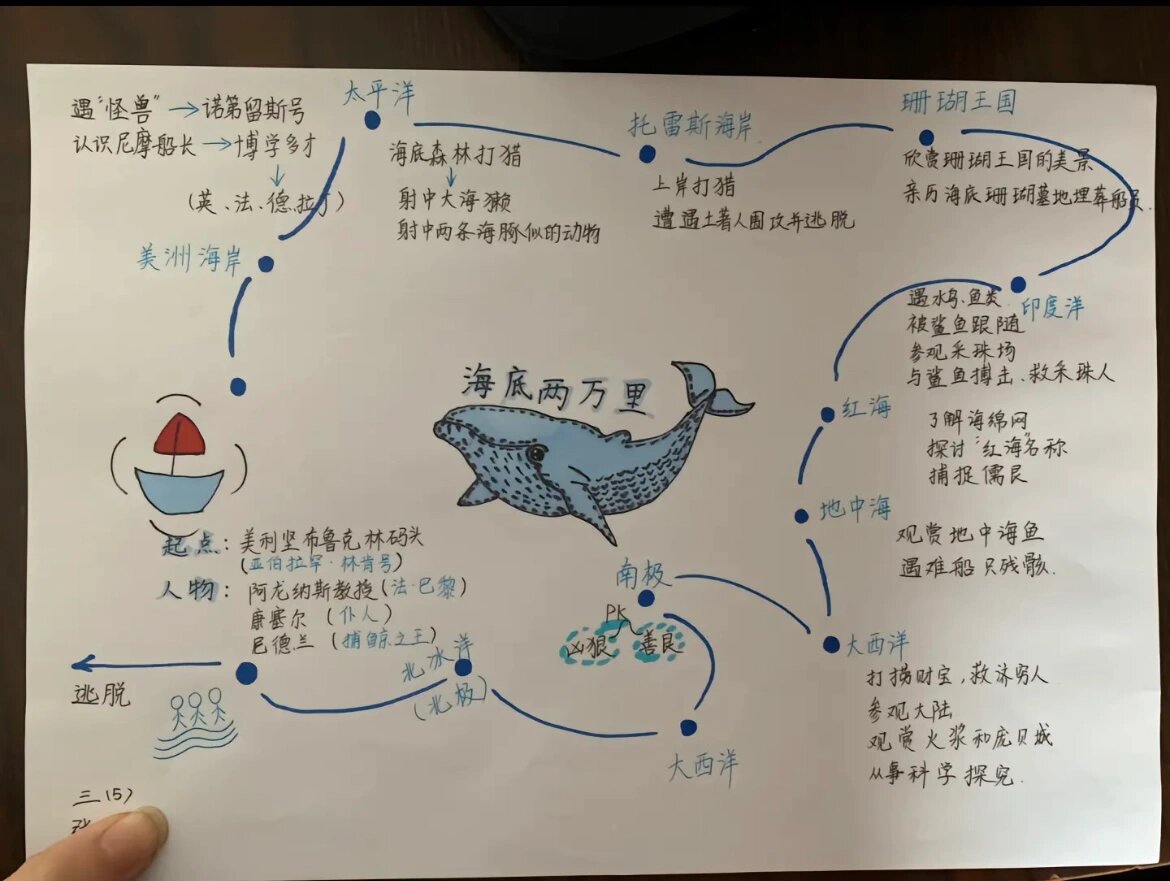 遇“怪兽”→诺第留斯号
认识尼摩船长→博学多才
(英、法、德、拉丁)
太平洋
海底森林打猎
射中大海獭
射中两条海豚似的动物
托雷斯海岸
上岸打猎
遭遇土著人围攻并逃脱
珊瑚王国
欣赏珊瑚王国的美景
亲历海底珊瑚墓地埋葬船员
美洲海岸
印度洋
遇水鸟、鱼类
被鲨鱼跟随
参观采珠场
与鲨鱼搏击、救采珠人
海底两万里
红海
了解海绵网
探讨“红海”名称
捕捉儒艮
地中海
观赏地中海鱼
遇难船只残骸.
起点:美利坚布鲁克林码头
(亚伯拉罕·林肯号)
人物:阿龙纳斯教授(法·巴黎)
康塞尔(仆人)
尼德兰(捕鲸之王)
南极
PK
凶狠 善良
大西洋
打捞财宝,救济穷人
参观大陆
观赏火浆和庞贝城
从事科学探究.
大西洋
北冰洋
(北极)
逃脱
三(5)